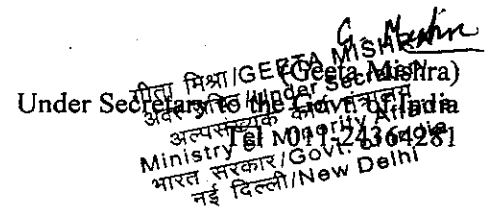 G. Mishra
(Geeta Mishra)
Under Secretary to the Govt. of India
Tel 011-24364281
गीता मिश्रा/GEETA MISHRA
अवर सचिव/Under Secretary
अल्पसंख्यक कार्य मंत्रालय
Ministry of Minority Affairs
भारत सरकार/Govt. of India
नई दिल्ली/New Delhi